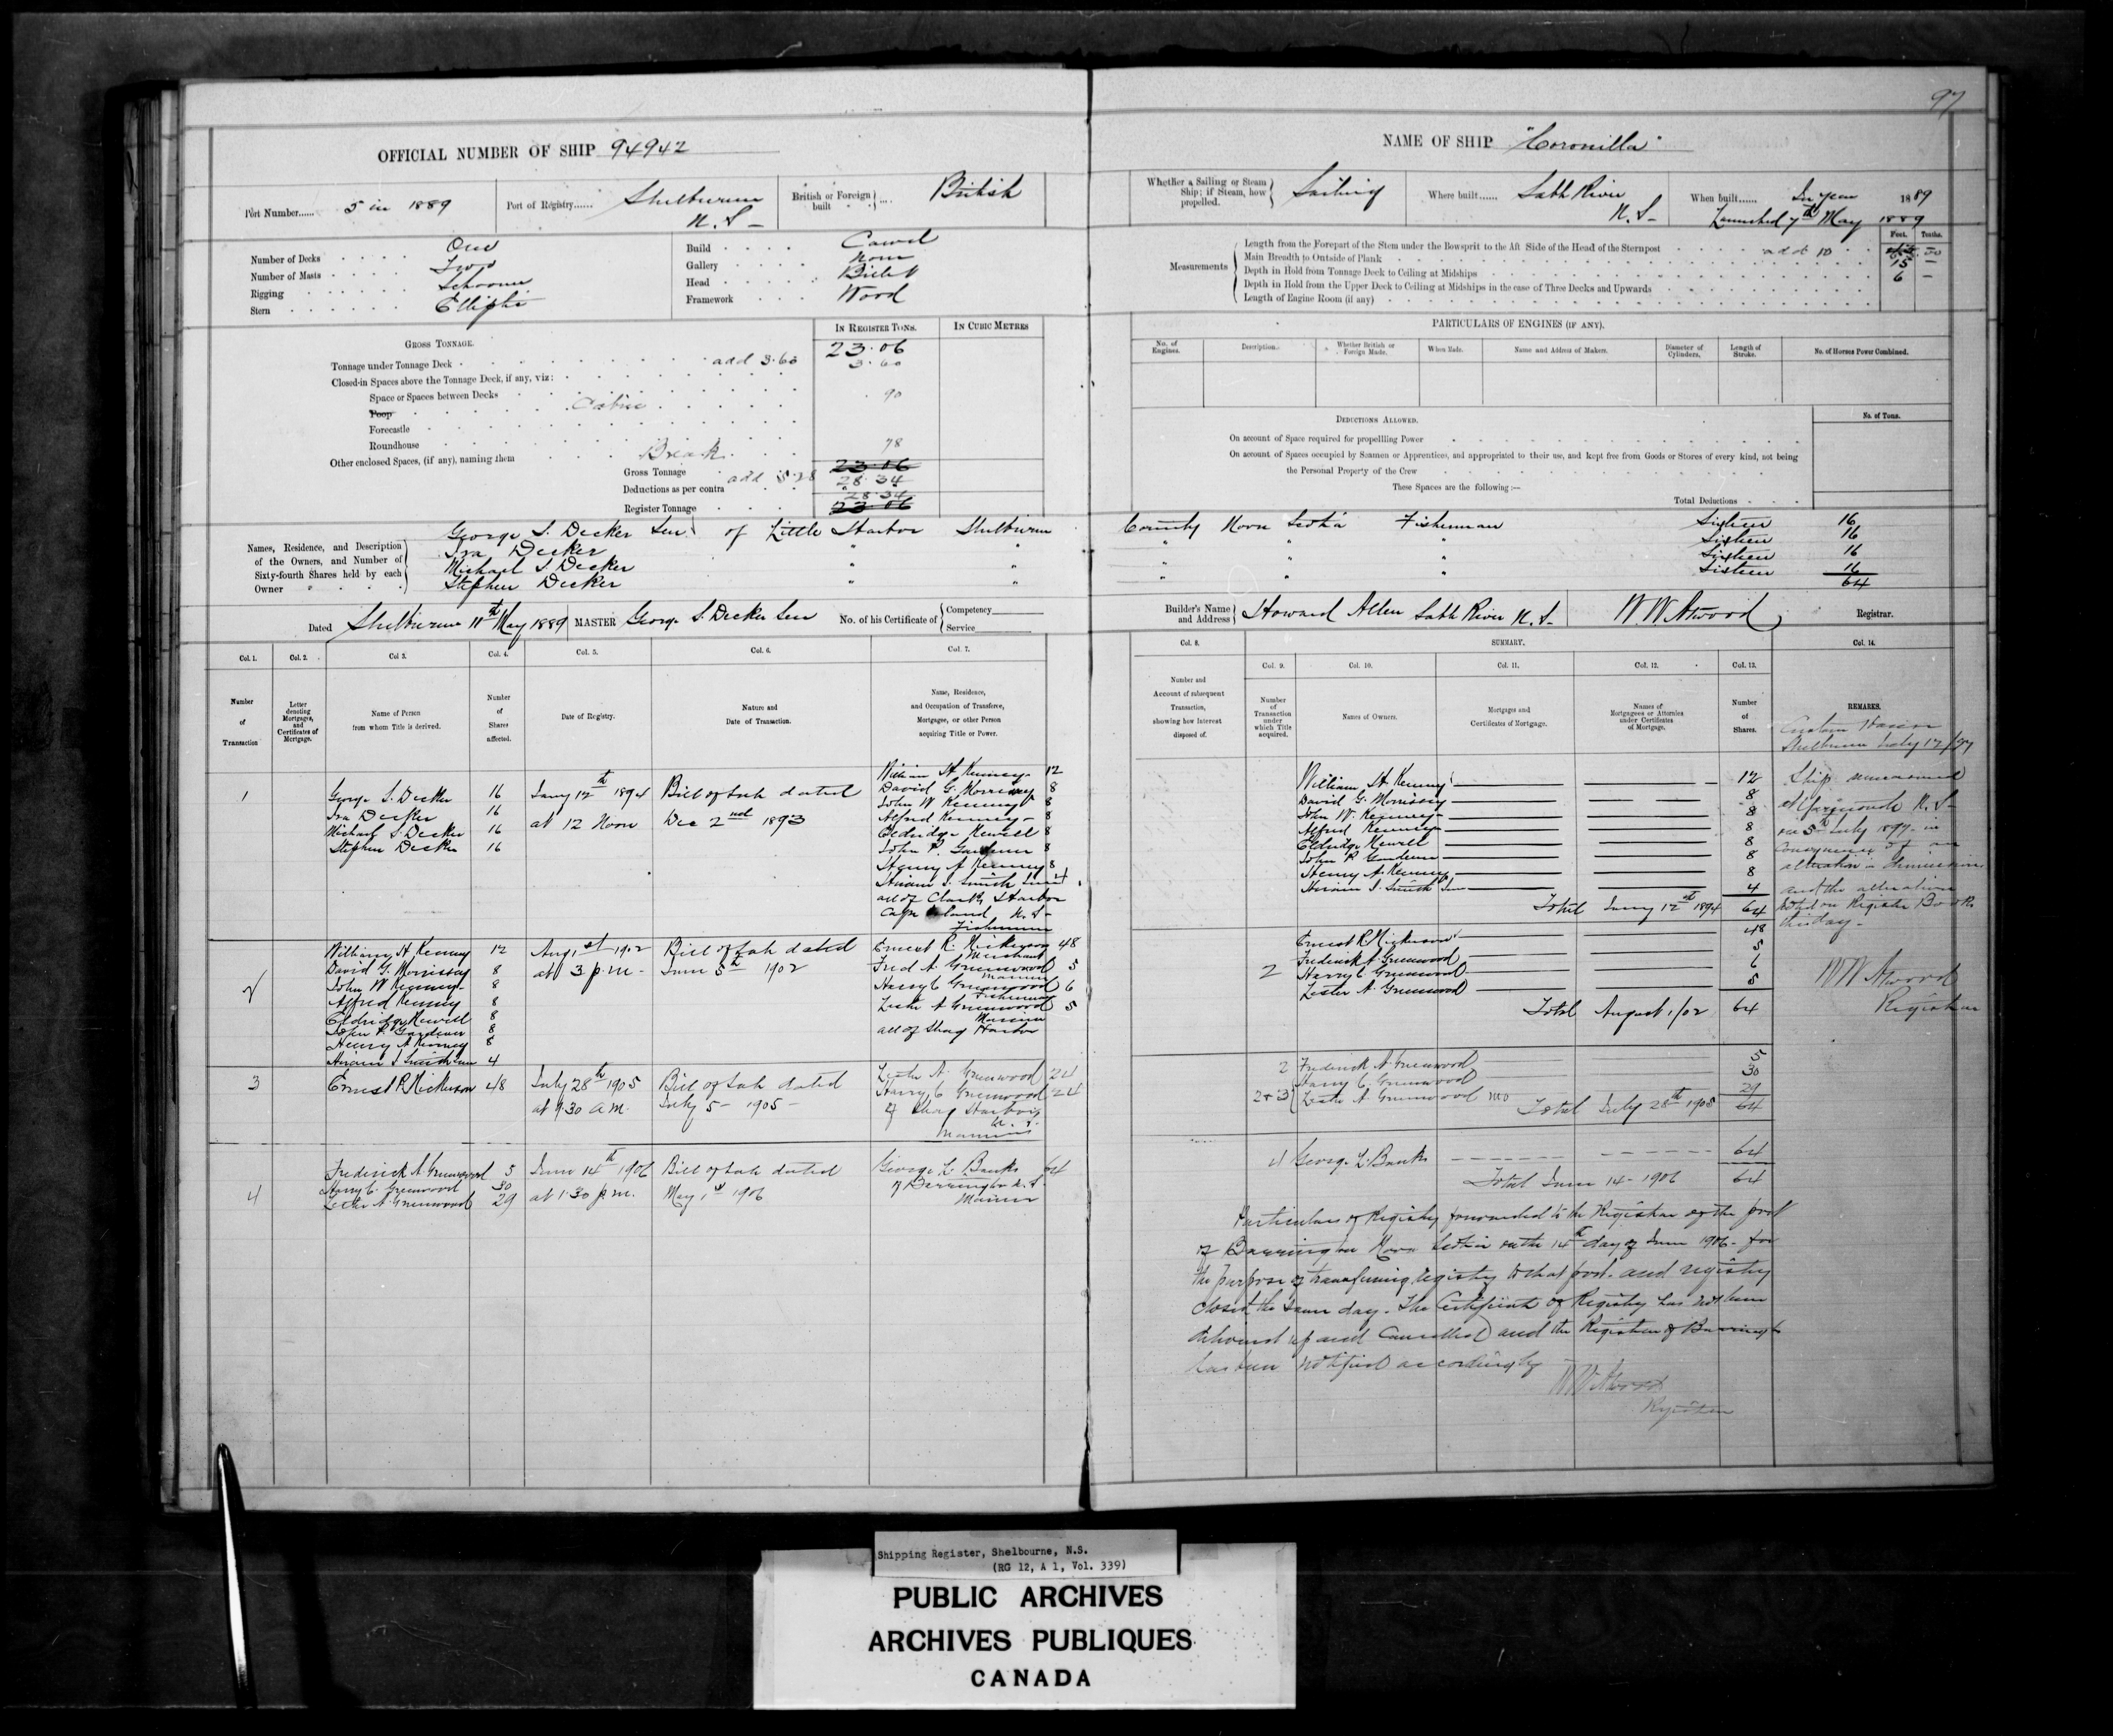 97
OFFICIAL NUMBER OF SHIP 94942
NAME OF SHIP "Coronilla"
Port Number...... 5 in 1889
Port of Registry...... Shelburne N.S-
British or Foreign built ... British
Whether a Sailing or Steam Ship; if Steam, how propelled. Sailing
Where built...... Sable River N.S-
When built...... In year 1889
Launched 7th May 1889
Number of Decks One
Number of Masts Two
Rigging Schooner
Stern Elliptic
Build Carvel
Gallery None
Head Billet
Framework Wood
Measurements
Feet. Tenths.
Length from the Forepart of the Stem under the Bowsprit to the Aft Side of the Head of the Sternpost add 10
Main Breadth to Outside of Plank 15 -
Depth in Hold from Tonnage Deck to Ceiling at Midships 6 -
Depth in Hold from the Upper Deck to Ceiling at Midships in the case of Three Decks and Upwards
Length of Engine Room (if any)
GROSS TONNAGE.
IN REGISTER TONS.
IN CUBIC METRES
Tonnage under Tonnage Deck add 3.60 23.06
3.60
Closed-in Spaces above the Tonnage Deck, if any, viz:
Space or Spaces between Decks
Poop Cabin 90
Forecastle
Roundhouse
Other enclosed Spaces, (if any), naming them Break 78
Gross Tonnage 23.06
add 5.28 28.34
Deductions as per contra
28.34
Register Tonnage 23.06
PARTICULARS OF ENGINES (IF ANY).
No. of Engines.
Description.
Whether British or Foreign Made.
When Made.
Name and Address of Makers.
Diameter of Cylinders.
Length of Stroke.
No. of Horses Power Combined.
DEDUCTIONS ALLOWED.
No. of Tons.
On account of Space required for propelling Power
On account of Spaces occupied by Seamen or Apprentices, and appropriated to their use, and kept free from Goods or Stores of every kind, not being
the Personal Property of the Crew
These Spaces are the following:—
Total Deductions
Names, Residence, and Description of the Owners, and Number of Sixty-fourth Shares held by each Owner
George S. Decker Senr of Little Harbor Shelburne County Nova Scotia Fisherman Sixteen 16
Ira Decker " " " " " Sixteen 16
Michael S. Decker Sixteen 16
Stephen Decker " " " " " Sixteen 16
64
Dated Shelburne 11th May 1889
MASTER George S. Decker Sen
No. of his Certificate of Competency
Service
Builder's Name and Address Howard Allen Sable River N.S-
W.W. Atwood
Registrar.
Col. 1.
Col. 2.
Col 3.
Col. 4.
Col. 5.
Col. 6.
Col. 7.
Col. 8.
SUMMARY.
Col. 9.
Col. 10.
Col. 11.
Col. 12.
Col. 13.
Col. 14.
Number of Transaction
Letter denoting Mortgages, and Certificates of Mortgage.
Name of Person from whom Title is derived.
Number of Shares affected.
Date of Registry.
Nature and Date of Transaction.
Name, Residence, and Occupation of Transferee, Mortgagee, or other Person acquiring Title or Power.
Number and Account of subsequent Transaction, showing how Interest disposed of.
Number of Transaction under which Title acquired.
Names of Owners.
Mortgages and Certificates of Mortgage.
Names of Mortgagees or Attornies under Certificates of Mortgage.
Number of Shares.
REMARKS.
1
George S. Decker 16
Ira Decker 16
Michael S. Decker 16
Stephen Decker 16
Jany 12th 1894
at 12 Noon
Bill of Sale dated
Dec 2nd 1893
William H Kenney 12
David G. Morrissey 8
John W Kenney 8
Alfred Kenney 8
Eldridge Newell 8
John P. Gardner 8
Henry A Kenney 8
Hiram S. Smith Sen 4
all of Clarks Harbor
Cape Island N.S-
Fishermen
William H Kenney 12
David G. Morrissey 8
John W. Kenney 8
Alfred Kenney 8
Eldridge Newell 8
John P Gardner 8
Henry A. Kenney 8
Hiram S. Smith Sen 4
Total Jany 12th 1894 64
Custom House
Shelburne July 12/97
Ship remeasured
at Yarmouth N.S-
on 5th July 1897 in
consequence of an
alteration in dimensions
and the alterations
noted on Register Book
this day-
W W Atwood
Registrar
2
William H Kenney 12
David G. Morrissey 8
John W Kenney 8
Alfred Kenney 8
Eldridge Newell 8
John P. Gardner 8
Henry A Kenney 8
Hiram S Smith Sen 4
Aug 1st 1902
at 3 p.m-
Bill of Sale dated
June 5th 1902
Ernest R. Nickerson 48
Merchant
Fred A. Greenwood 5
Mariner
Harry C Greenwood 6
Fisherman
Lester A Greenwood 5
Mariner
all of Shag Harbor
2
Ernest R. Nickerson 48
Frederick A. Greenwood 5
Harry C Greenwood 6
Lester A. Greenwood 5
Total August 1/02 64
3
Ernest R Nickerson 48
July 28th 1905
at 9.30 a.m.
Bill of Sale dated
July 5- 1905-
Lester A. Greenwood 24
Harry C Greenwood 24
of Shag Harbor
N. S.
Mariners
2 Frederick A. Greenwood 5
Harry C. Greenwood 30
2+3 Lester A Greenwood 29
Total July 28th 1905 64
4
Frederick A. Greenwood 5
Harry C. Greenwood 30
Lester A. Greenwood 29
June 14th 1906
at 1.30 p.m.
Bill of Sale dated
May 1st 1906
George L. Banks 64
of Barrington N.S-
Mariner
4 George L. Banks 64
Total June 14- 1906 64
Particulars of Registry forwarded to the Registrar of the port
of Barrington Nova Scotia on the 14th day of June 1906- for
the purpose of transferring registry to that port- and registry
closed the same day- The Certificate of Registry has not been
delivered up and cancelled and the Registrar of Barrington
has been notified accordingly
W W Atwood
Registrar
Shipping Register, Shelbourne, N.S.
(RG 12, A 1, Vol. 339)
PUBLIC ARCHIVES
ARCHIVES PUBLIQUES
CANADA